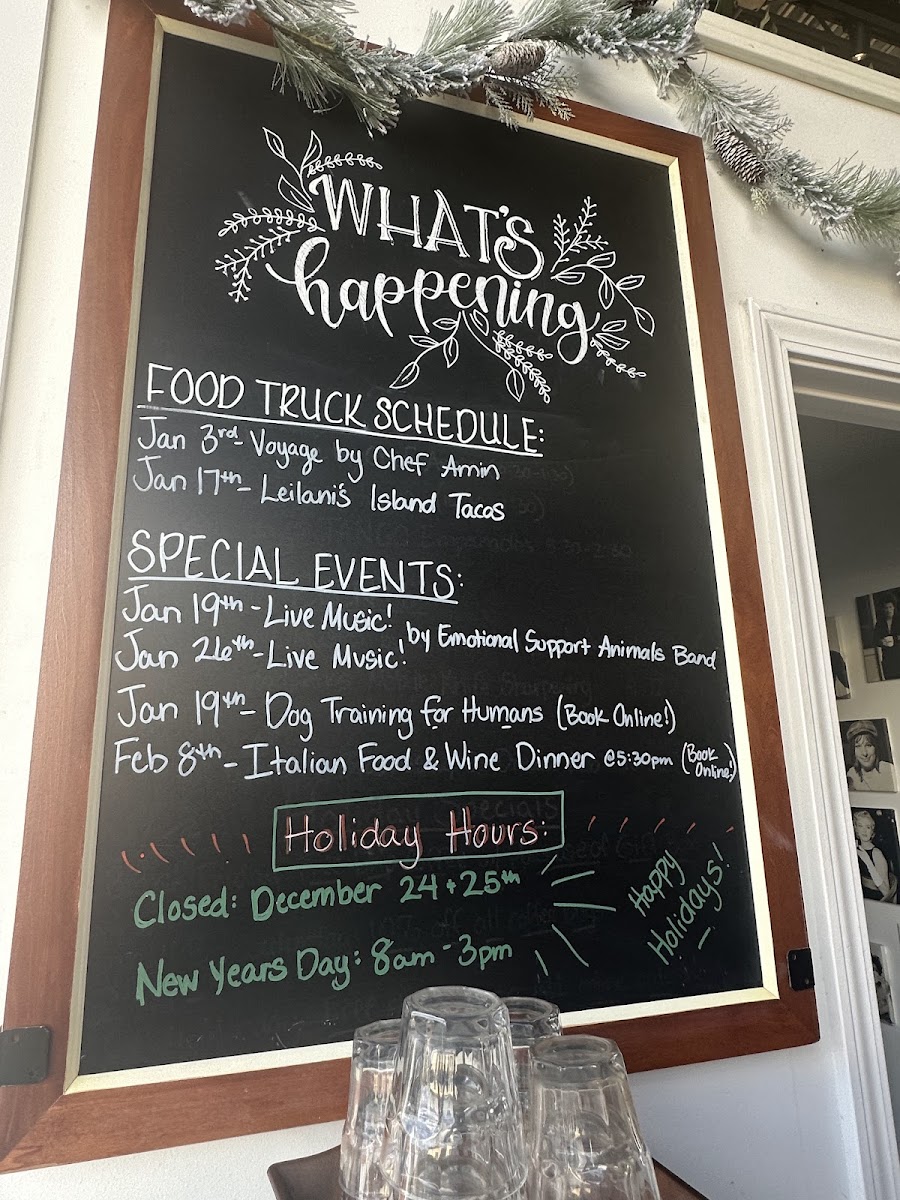 WHAT'S
happening
FOOD TRUCK SCHEDULE:
Jan 3rd- Voyage by Chef Amin
Jan 17th- Leilani's Island Tacos
SPECIAL EVENTS:
Jan 19th - Live Music!
Jan 26th - Live Music! by Emotional Support Animals Band
Jan 19th - Dog Training for Humans (Book Online!)
Feb 8th - Italian Food & Wine Dinner @5:30pm (Book Online!)
Holiday Hours:
Closed: December 24 + 25th
New Years Day: 8am - 3pm
Happy
Holidays!